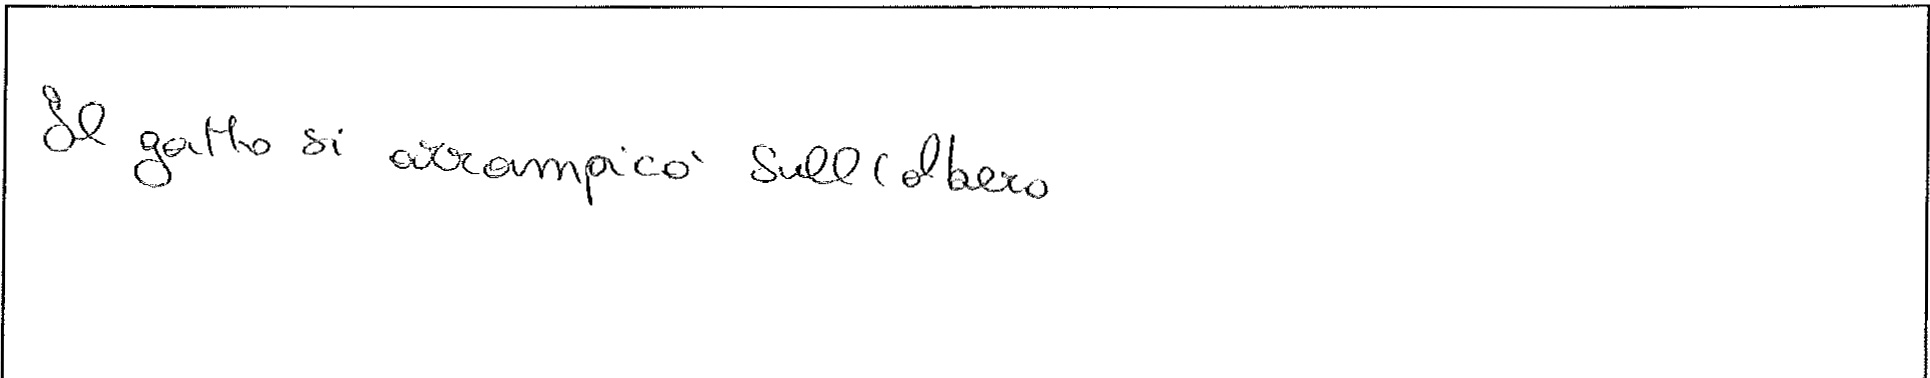 Il gatto si arrampicò sull'albero